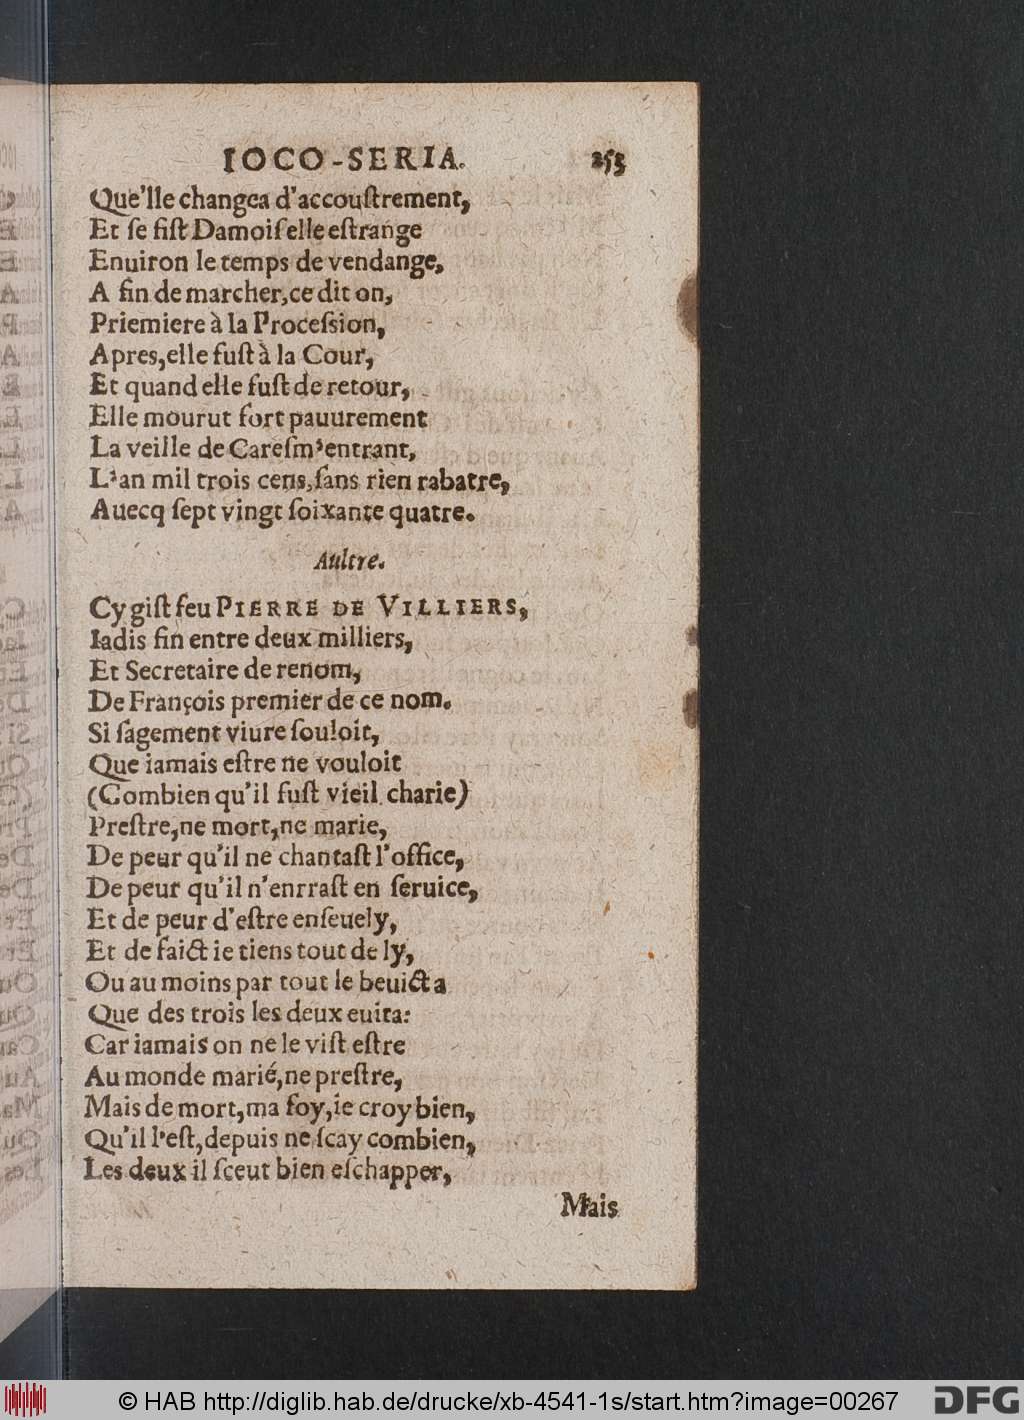 IOCO-SERIA. 253
Que'lle changea d'accouſtrement,
Et ſe fiſt Damoiſelle eſtrange
Enuiron le temps de vendange,
A fin de marcher, ce dit on,
Priemiere à la Proceſsion,
Apres, elle fuſt à la Cour,
Et quand elle fuſt de retour,
Elle mourut fort pauurement
La veille de Careſm'entrant,
L'an mil trois cens, ſans rien rabatre,
Auecq ſept vingt ſoixante quatre.
Aultre.
Cy giſt feu PIERRE DE VILLIERS,
Iadis fin entre deux milliers,
Et Secretaire de renom,
De François premier de ce nom.
Si ſagement viure ſouloit,
Que iamais eſtre ne vouloit
(Combien qu'il fuſt vieil charie)
Preſtre, ne mort, ne marie,
De peur qu'il ne chantaſt l'office,
De peur qu'il n'enrraſt en ſeruice,
Et de peur d'eſtre enſeuely,
Et de faict ie tiens tout de ly,
Ou au moins par tout le beuict a
Que des trois les deux euita:
Car iamais on ne le viſt eſtre
Au monde marié, ne preſtre,
Mais de mort, ma foy, ie croy bien,
Qu'il l'eſt, depuis ne ſcay combien,
Les deux il ſceut bien eſchapper,
Mais
© HAB http://diglib.hab.de/drucke/xb-4541-1s/start.htm?image=00267
DFG